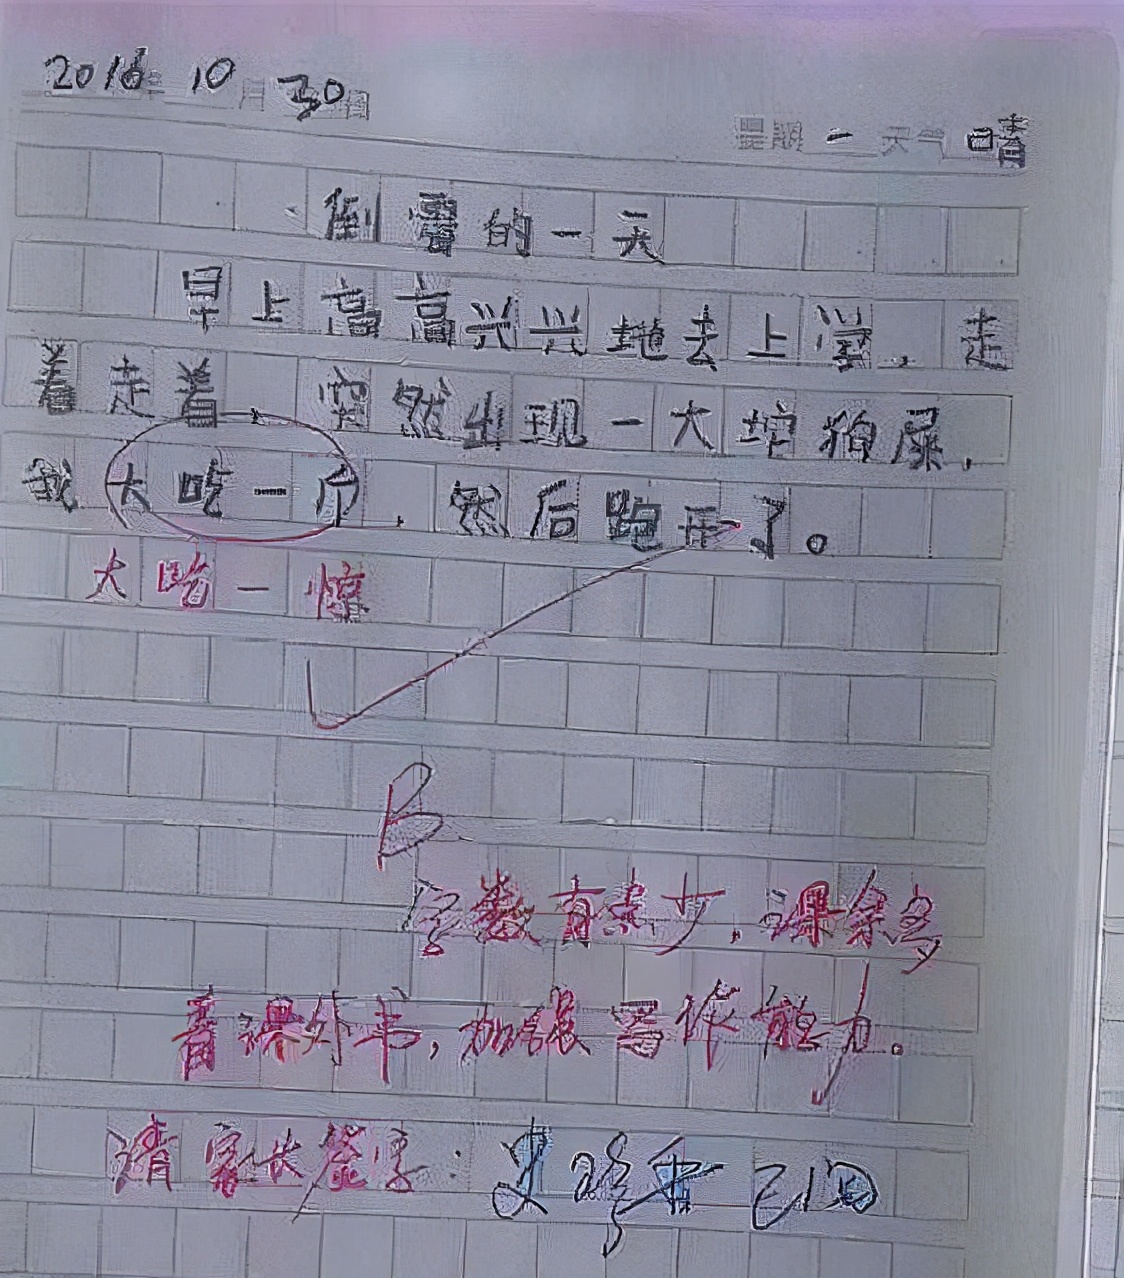 2016年 10月30日
星期一 天气晴
倒霉的一天
早上高高兴兴地去上学,走
着走着,突然出现一大坨狗屎,
我大吃一斤,然后跑开了。
大吃一惊
B
字数有点少,课余多
看课外书,加强写作能力。
请家长签字: